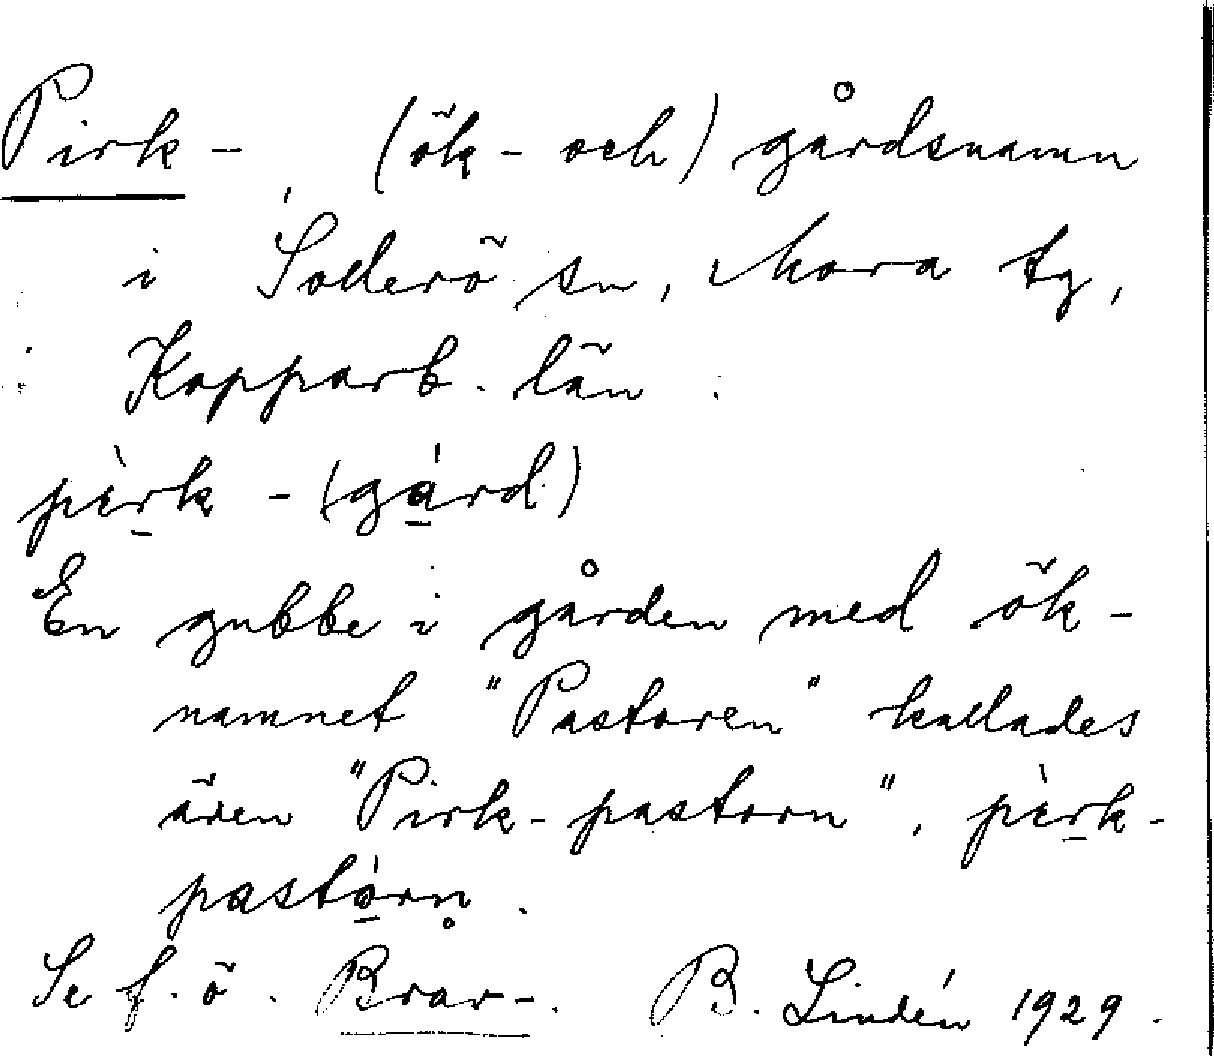 Pirk-, (ök- och) gårdsnamn
i Solerö sn, Mora tg,
Kopparb. län.
pèrk - (gård)
En gubbe i gården med ök-
namnet "Pastoren" kallades
även "Pirk-pastorn", pèrk-
pastórn.
Se f. ö. Brar-. B. Lindén 1929.